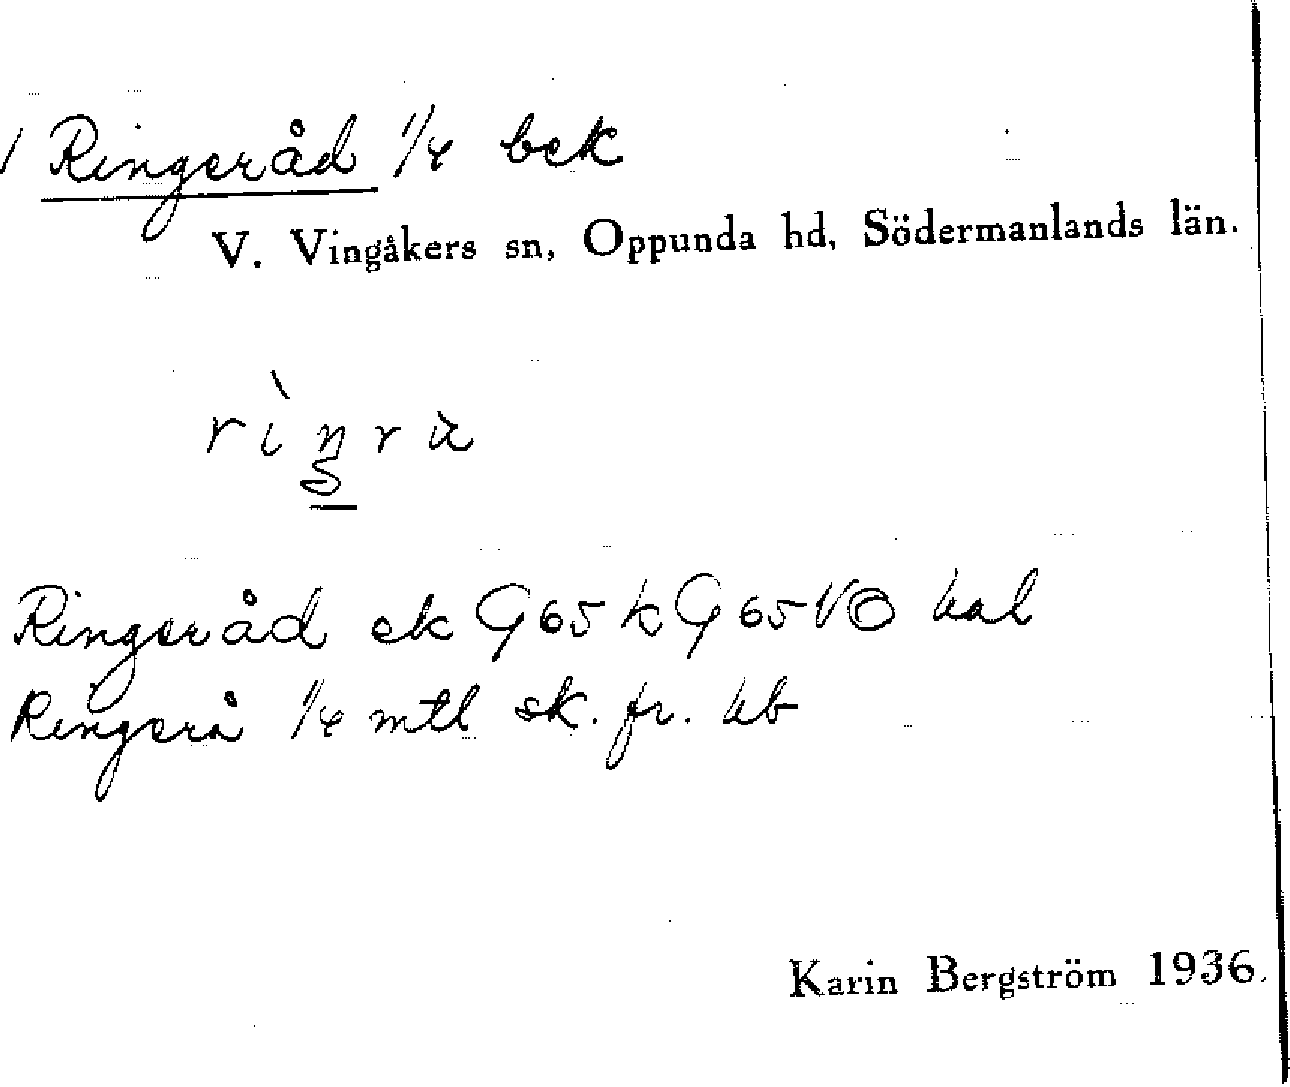 Ringeråd 1/4 bek
V. Vingåkers sn, Oppunda hd, Södermanlands län.
Ringeråd ek G65 k G65 VO hal
Ringerå 1/4 mtl sk. fr. hb
Karin Bergström 1936.